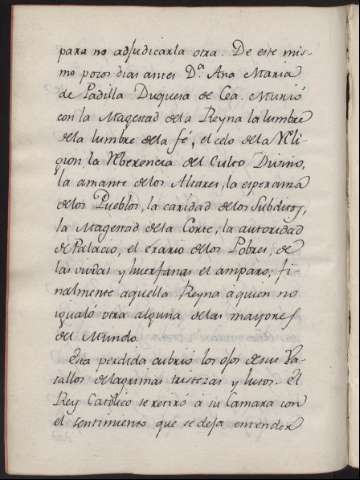 para no adjudicarla otra. De este mis-
mo pocos dias antes D.ª Ana Maria
de Padilla Duquesa de Cea. Murió
con la Magestad de la Reyna la lumbre
dela lumbre dela fé, el celo dela Reli
gion la Reberencia del Culto Divino,
la amante delos Altares, la esperanza
delos Pueblos, la caridad delos Subditos,
la Magestad dela Corte, la autoridad
de Palacio, el erario delos Pobres, de
las viudas y huerfanas el amparo, fi
nalmente aquella Reyna à quien no
igualó otra alguna delas mayores
del Mundo.
Esta perdida cubrió los ojos desus Va-
sallos delagrimas tristezas y lutos. El
Rey Catolico se retiró a su Camara con
el sentimiento que se deja entender